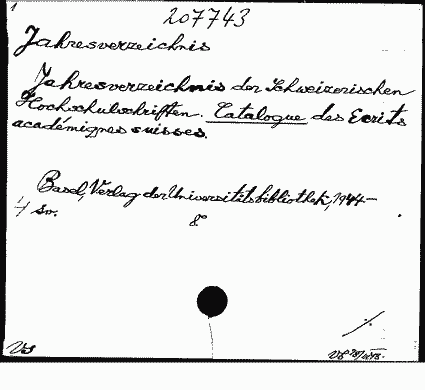 1
207743
Jahresverzeichnis
Jahresverzeichnis der Schweizerischen
Hochschulschriften. Catalogue des Ecrits
académiques suisses.
Basel, Verlag der Universitätsbibliothek, 1944-
4/ Sv. 8°
VS